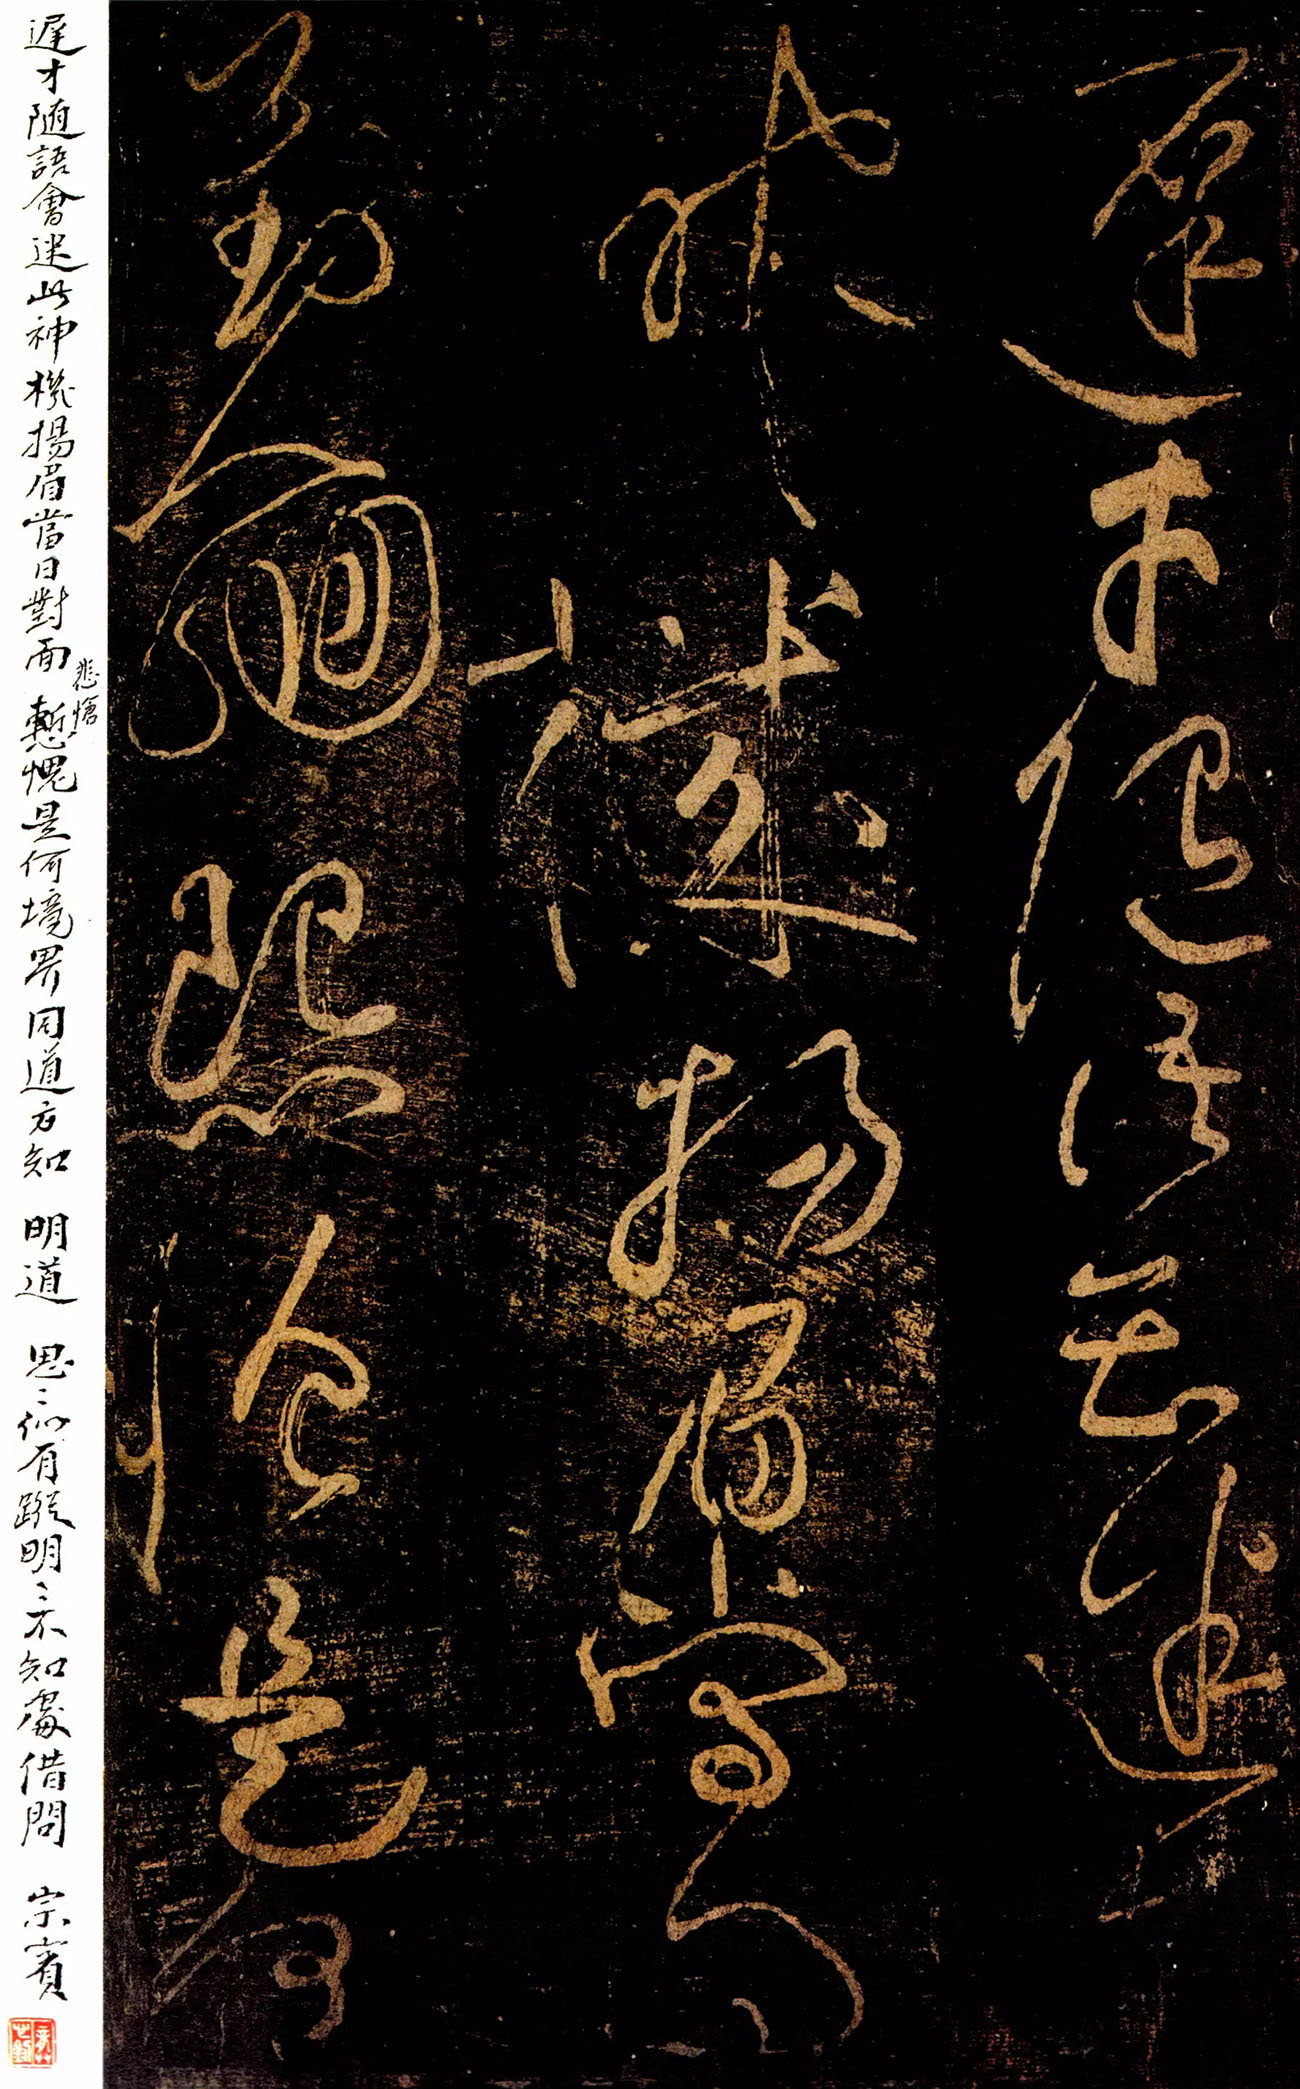 遲才随語迷
神機揚眉當
對面是何
遲才随語會迷此神機揚眉當日對面慙愧是何境界同道方知 明道 思〻似有蹤明〻不知處借問 宗賓
悲愴